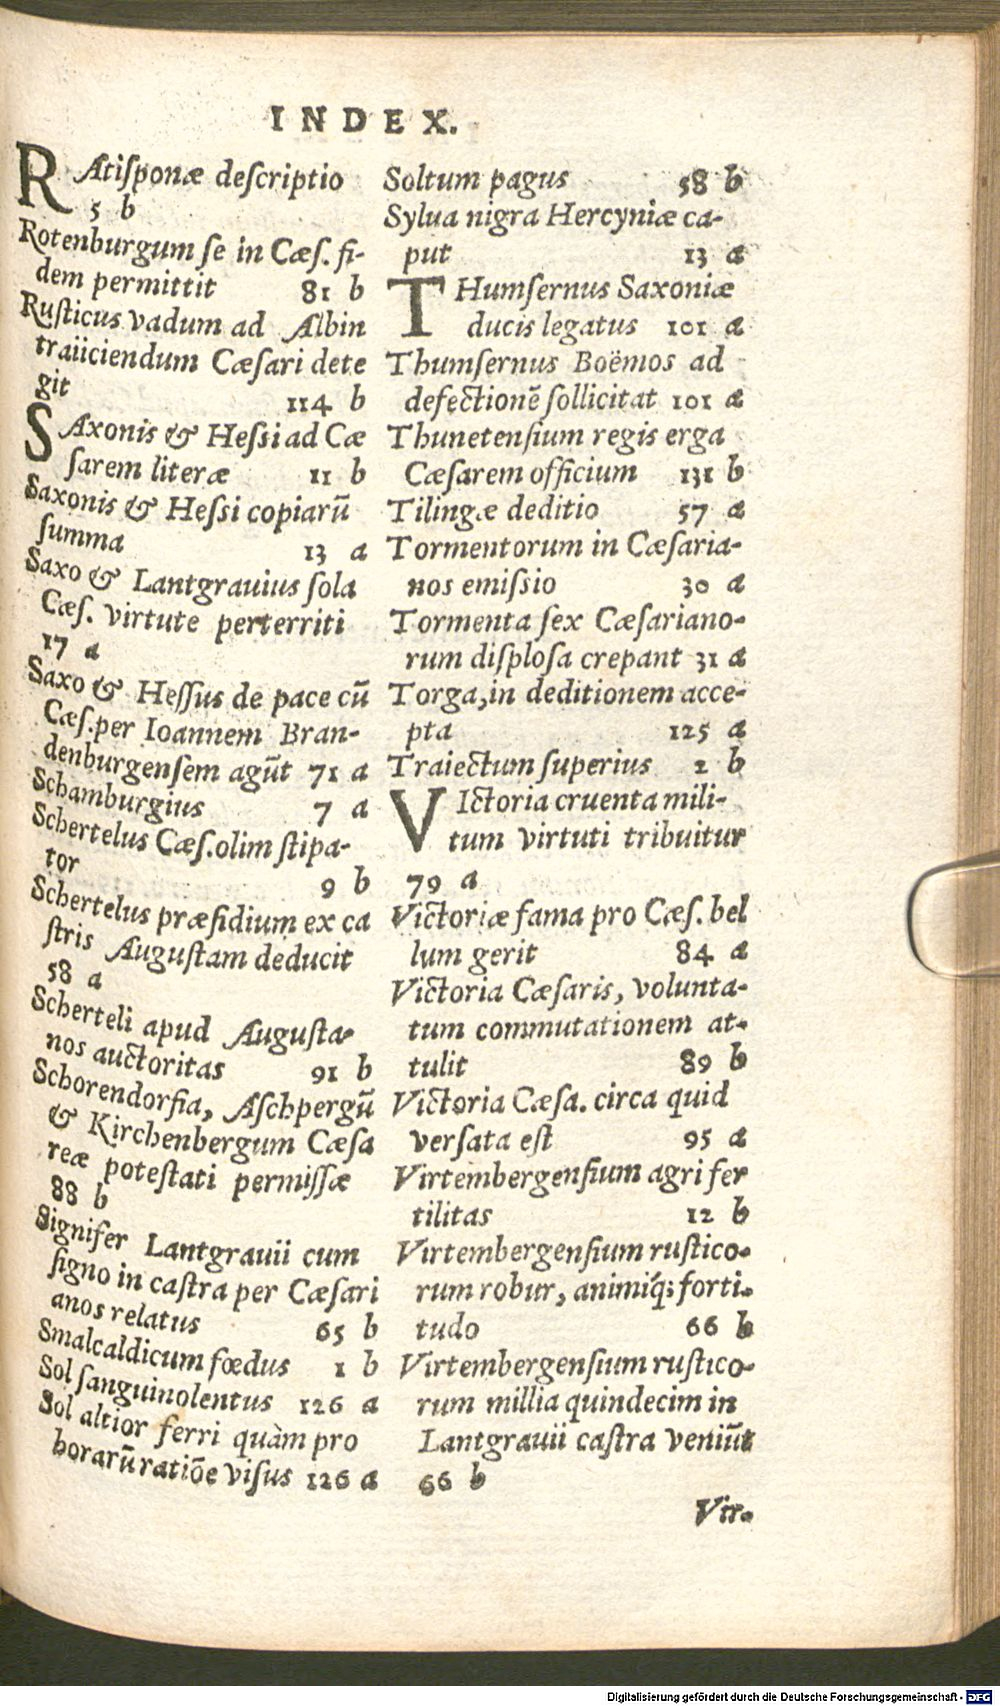 INDEX.
RAtisponæ descriptio
5 b
Rotenburgum se in Cæs. fi-
dem permittit 81 b
Rusticus vadum ad Albin
traiiciendum Cæsari dete
git 114 b
SAxonis & Hessi ad Cæ
sarem literæ 11 b
Saxonis & Hessi copiarũ
summa 13 a
Saxo & Lantgrauius sola
Cæs. virtute perterriti
17 a
Saxo & Hessus de pace cũ
Cæs.per Ioannem Bran-
denburgensem agũt 71 a
Schamburgius 7 a
Schertelus Cæs.olim stipa-
tor 9 b
Schertelus præsidium ex ca
stris Augustam deducit
58 a
Scherteli apud Augusta-
nos auctoritas 91 b
Schorendorfia, Aschpergũ
& Kirchenbergum Cæsa
reæ potestati permissæ
88 b
Signifer Lantgrauii cum
signo in castra per Cæsari
anos relatus 65 b
Smalcaldicum fœdus 1 b
Sol sanguinolentus 126 a
Sol altior ferri quàm pro
horarũ ratiõe visus 126 a
Soltum pagus 58 b
Sylua nigra Hercyniæ ca-
put 13 a
THumsernus Saxoniæ
ducis legatus 101 a
Thumsernus Boëmos ad
defectionẽ sollicitat 101 a
Thunetensium regis erga
Cæsarem officium 131 b
Tilingæ deditio 57 a
Tormentorum in Cæsaria-
nos emissio 30 a
Tormenta sex Cæsariano-
rum displosa crepant 31 a
Torga,in deditionem acce-
pta 125 a
Traiectum superius 2 b
VIctoria cruenta mili-
tum virtuti tribuitur
79 a
Victoriæ fama pro Cæs. bel
lum gerit 84 a
Victoria Cæsaris, volunta-
tum commutationem at-
tulit 89 b
Victoria Cæsa. circa quid
versata est 95 a
Virtembergensium agri fer
tilitas 12 b
Virtembergensium rustico-
rum robur, animiq́; forti-
tudo 66 b
Virtembergensium rustico-
rum millia quindecim in
Lantgrauii castra veniũt
66 b
Vir-
Digitalisierung gefördert durch die Deutsche Forschungsgemeinschaft - DFG